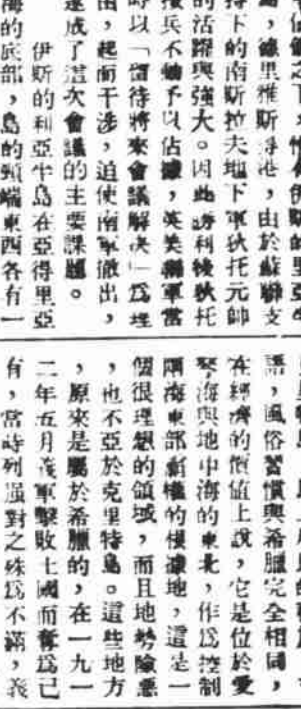 島，德里雅斯特港，由於蘇聯支
持下的南斯拉夫地下軍狄托元帥
的活躍與強大。因此勝利後狄托
按兵不動予以佔據，英美聯軍當
時以「留待將來會議解決」爲理
由，起而干涉，迫使南軍撤出，
遂成了這次會議的主要課題。
伊斯的利亞牛島在亞得里亞
海的底部，島的頸端東西各有一
語，風俗習慣與希臘完全相同，
在經濟的價值上說，它是位於愛
琴海與地中海的東北，作爲控制
兩海東部霸權的根據地，這是一
個很理想的領域，而且地勢險惡
，也不亞於克里特島。這些地方
，原來是屬於希臘的，在一九一
二年五月義軍擊敗土國而奪爲己
有，當時列强對之殊爲不滿，義